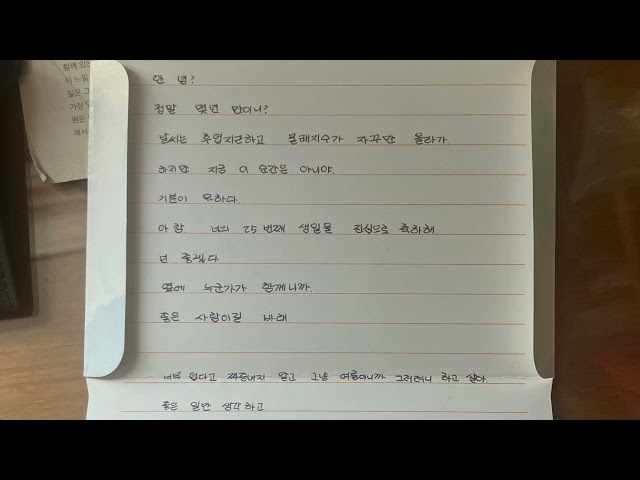 함께 있
이 느낄
일은 그
가장
원은
에서
안녕?
정말 몇년 만이니?
날씨는 후덥지근하고 불쾌지수가 자꾸만 올라가.
하지만 지금 이 순간은 아니야.
기분이 묘하다.
아 참, 너의 25번째 생일을 진심으로 축하해.
넌 좋겠다.
옆에 누군가가 함께니까.
좋은 사람이길 바래.
너무 덥다고 짜증내지 말고 그냥 여름이니까 그러려니 하고 살아
좋은 일만 생각하고